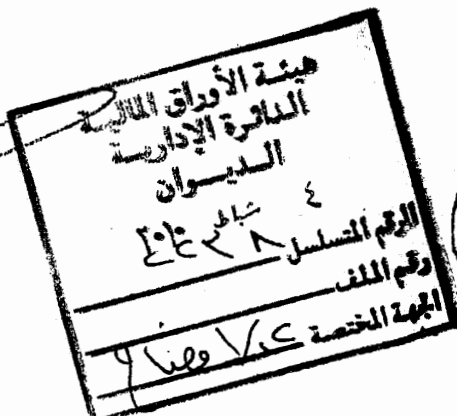 هيئة الأوراق المالية
الدائرة الإدارية
الديوان
٤ شباط
الرقم المتسلسل
رقم الملف
الجهة المختصة